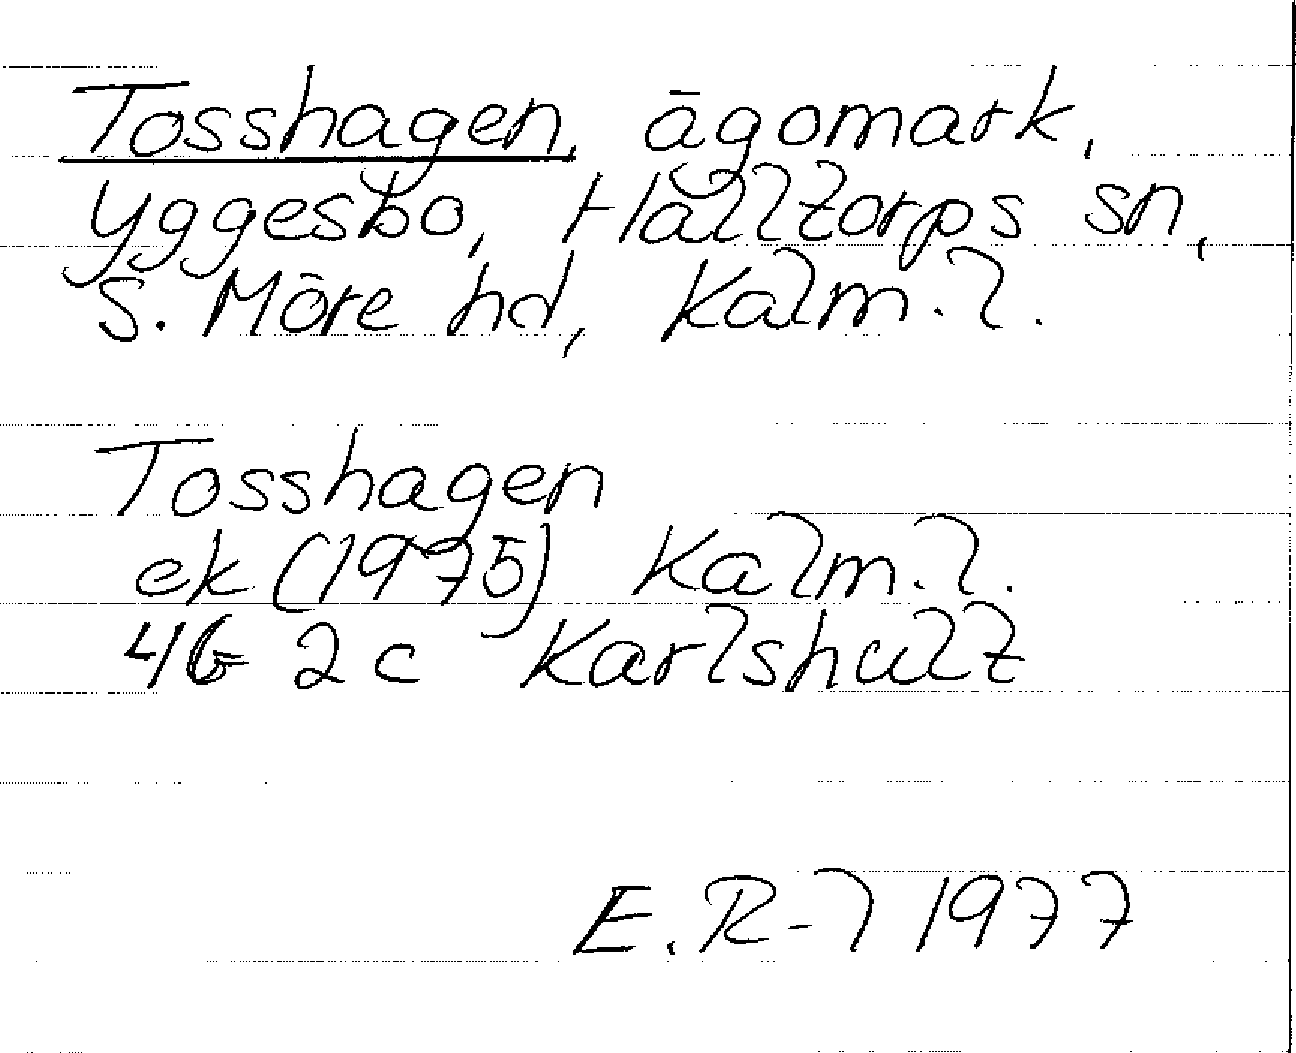 Tosshagen, ägomark,
Yggesbo, Halltorps sn,
S. Möre hd, Kalm. l.
Tosshagen
ek (1975) Kalm. l.
4G 2c Karlshult
E. R-l 1977